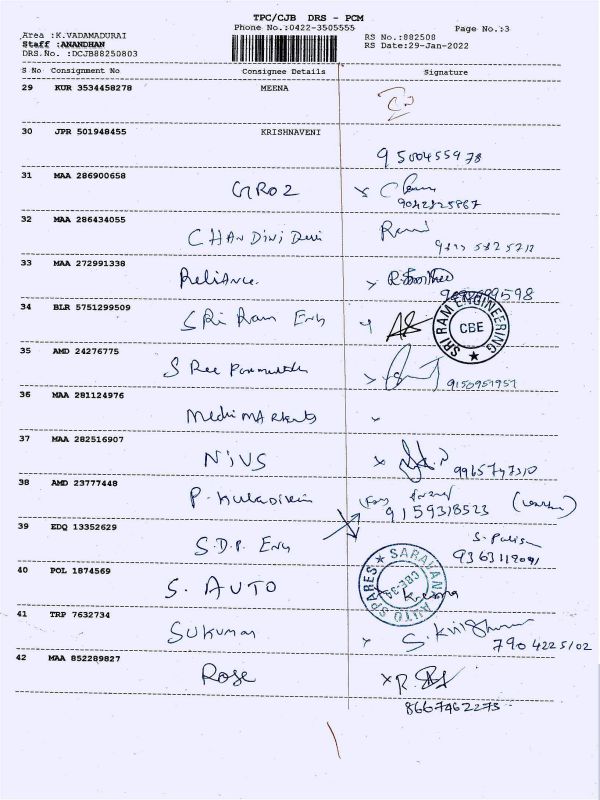 TPC/CJB DRS - PCM
Phone No.:0422-3505555
Page No.:3
Area :K.VADAMADURAI
Staff :ANANDHAN
DRS.No. :DCJB88250803
RS No.:882508
RS Date:29-Jan-2022
S No Consignment No Consignee Details Signature
29 KUR 3534458278 MEENA
30 JPR 501948455 KRISHNAVENI
9500455978
31 MAA 286900658 GROZ
32 MAA 286434055 CHANDINI Devi
33 MAA 272991338 Reliance.
34 BLR 5751299509 SRi Ram Eng
SRI RAM ENGINEERING CBE
35 AMD 24276775 SRee
9150951951
36 MAA 281124976
37 MAA 282516907 NIUS
38 AMD 23777448 P.
9159318523
39 EDQ 13352629 S.D.P. Eng
9363119091
40 POL 1874569 S. AUTO
SARAVANA AUTO SPARES
41 TRP 7632734 SUKUMAR
7904225102
42 MAA 852289827 Rose
8667462273